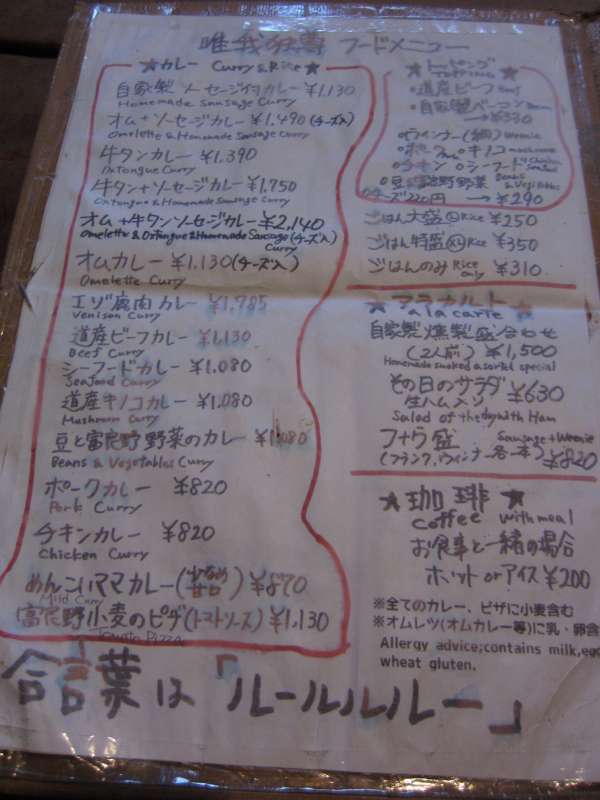 唯我独尊 フードメニュー
★カレー Curry & Rice★
自家製ソーセージ付カレー ¥1,130
Homemade Sausage Curry
オム+ソーセージカレー ¥1,490 (チーズ入)
Omelette & Homemade Sausage Curry
牛タンカレー ¥1,390
OxTongue Curry
牛タン+ソーセージカレー ¥1,750
OxTongue & Homemade Sausage Curry
オム+牛タンソーセージカレー ¥2,140
Omelette & OxTongue & Homemade Sausage (チーズ入)
Curry
オムカレー ¥1,130 (チーズ入)
Omelette Curry
エゾ鹿肉カレー ¥1,785
Venison Curry
道産ビーフカレー ¥1,130
Beef Curry
シーフードカレー ¥1,080
Seafood Curry
道産キノコカレー ¥1,080
Mushroom Curry
豆と富良野野菜のカレー ¥1,080
Beans & Vegetables Curry
ポークカレー ¥820
Pork Curry
チキンカレー ¥820
Chicken Curry
めんこいママカレー (少なめ 甘口) ¥870
Mild Curry
富良野小麦のピザ (トマトソース) ¥1,130
Tomato Pizza
★トッピング★
TOPPING
・道産ビーフ Beef
・自家製ベーコン Bacon
→¥330
○ウインナー(2個) Weenie
○ポーク ○キノコ mushroom
○チキン Chicken ○シーフード Seafood
○豆と富良野野菜 Beans & Vegitables
○チーズ220円 →¥290
ごはん大盛 Rice ¥250
ごはん特盛 Rice ¥350
ごはんのみ Rice only ¥310
★アラカルト★
a la carte
自家製燻製盛合わせ
(2人前) ¥1,500
Homemade smoked assorted special
その日のサラダ ¥630
生ハム入り
Salad of the day with Ham
フラウ盛 Sausage+Weenie
(フランク、ウィンナー各一本) ¥820
★珈琲★
coffee with meal
お食事と一緒の場合
ホット or アイス ¥200
※全てのカレー、ピザに小麦含む
※オムレツ(オムカレー等)に乳・卵含
Allergy advice;contains milk,egg
wheat gluten.
合言葉は「ルールルルー」